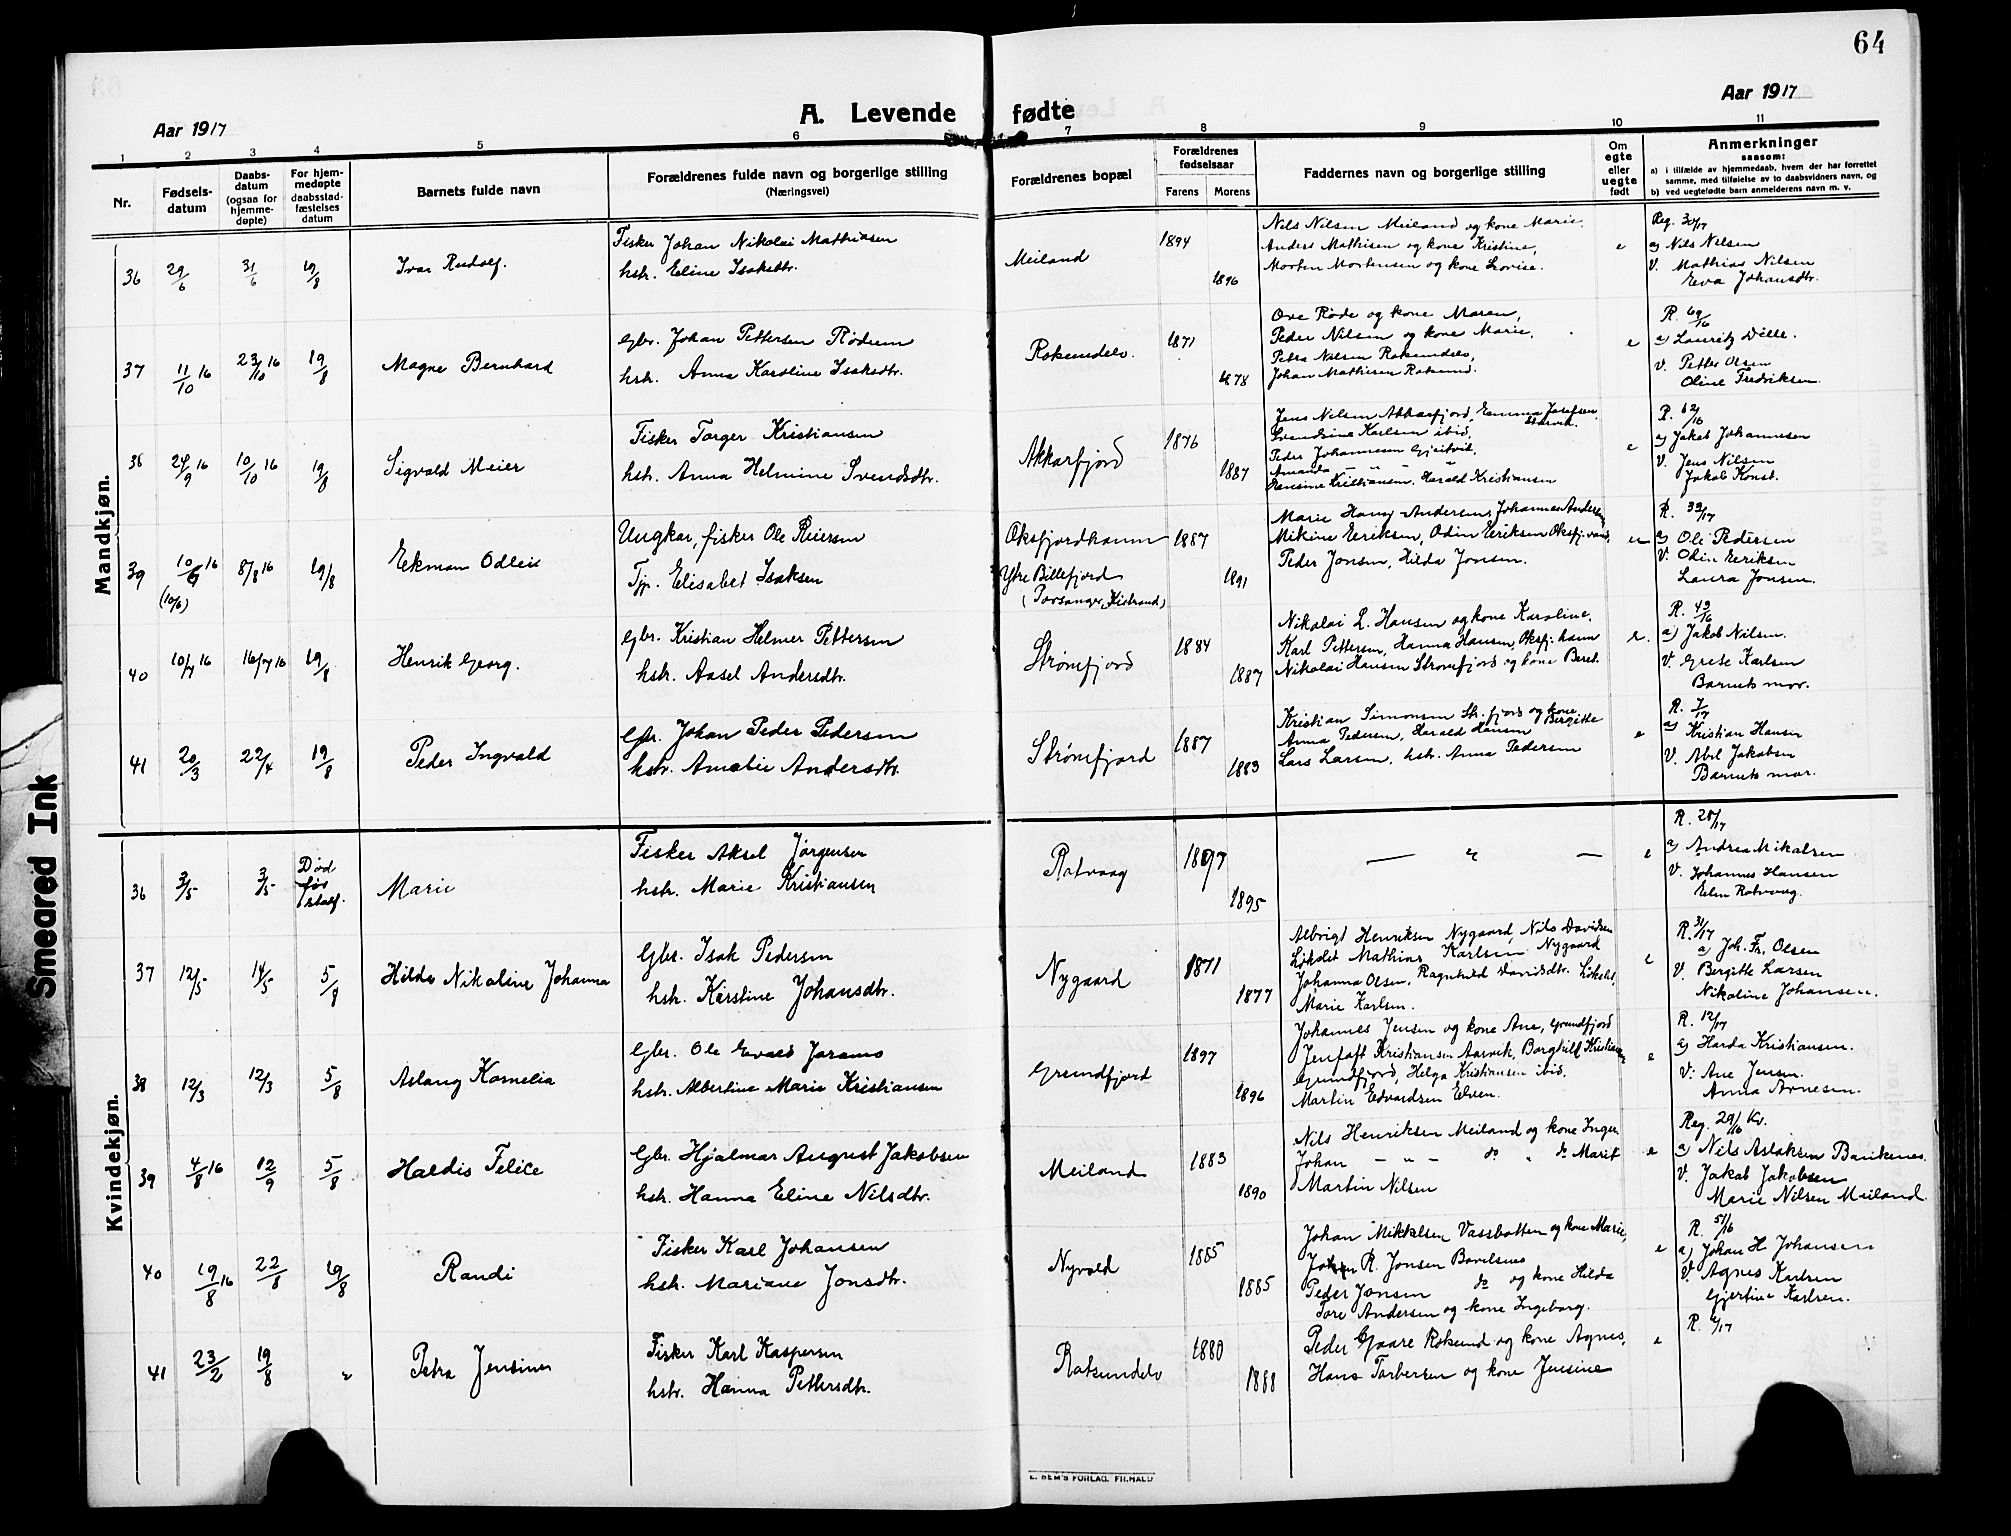 64
Aar 1917
A. Levende fødte
Aar 1917
1 2 3 4 5 6 7 8 9 10 11
Nr.
Fødsels-
datum
Daabs-
datum
(ogsaa for
hjemme-
døpte)
For hjem-
medøpte
daabsstad-
fæstelses
datum
Barnets fulde navn
Forældrenes fulde navn og borgerlige stilling
(Næringsvei)
Forældrenes bopæl
Forældrenes
fødselsaar
Farens Morens
Faddernes navn og borgerlige stilling
Om
egte
eller
uegte
født
Anmerkninger
saasom:
a) i tilfælde av hjemmedaab, hvem der har forrettet
samme, med tilføielse av to daabsvidners navn, og
b) ved uegtefødte barn anmelderens navn m. v.
Mandkjøn.
36 29/6 31/6 19/8 Ivar Rudolf.
Fisker Johan Nikolai Mathiasen
hstr. Eline Isaksdtr.
Meiland 1894 1896
Nils Nilsen Meiland og kone Marie
Anders Mathisen og kone Kristine,
Morten Mortensen og kone Lovise.
e
Reg. 30/17
a) Nils Nilsen
V. Mathias Nilsen
Eva Johansdtr.
37 11/10 16 23/10 16 19/8 Magne Bernhard
Gbr. Johan Pettersen Rødum
hstr. Anna Karoline Isaksdtr.
Roksundelv. 1871 1878
Ove Røde og kone Maren,
Peder Nilsen og kone Marie,
Petra Nilsen Roksundelv,
Johan Mathisen Roksund.
e
R. 69/16
a) Lauritz Dølle.
V. Petter Olsen
Oline Fredriksen.
38 24/9 16 10/10 16 19/8 Sigvald Meier
Fisker Torger Kristiansen
hstr. Anna Helmine Svendsdtr.
Akkarfjord 1876 1887
Jens Nilsen Akkarfjord, Emma Josefsen
Svendsine Karlsen ibid, Storvik.
Peder Johannesen Gjeitvik,
Amanda — " — "
Hansine Kristiansen, Harald Kristiansen
e
R. 62/16
a) Jakob Johannesen
V. Jens Nilsen
Jakob Konst.
39 10/9 16 (10/6) 8/8 16 19/8 Ekman Odleiv
Ungkar, fisker Ole Reiersen
Tjp. Elisabet Isaksen
Oksfjordhamn 1887
Ytre Billefjord
(Porsanger, Kistrand) 1891
Marie Hansy Andersen, Johannes Andersen
Mikine Eriksen, Odin Eriksen Oksfj.vand,
Peder Jonsen, Hilda Jonsen.
ue
R. 32/17
a) Ole Pedersen
V. Odin Eriksen
Laura Jonsen.
40 10/7 16 16/7 16 19/8 Henrik Georg.
Gbr. Kristian Helmer Pettersen
hstr. Aasel Andersdtr.
Strømfjord 1884 1887
Nikolai L. Hansen og kone Karoline,
Karl Pettersen, Hanna Hansen, Oksfj.hamn
Nikolai Hansen Strømfjord og kone Beret.
e.
R. 43/16
a) Jakob Nilsen.
V. Grete Karlsen
Barnets mor.
41 20/3 22/4 19/8 Peder Ingvald
Gbr. Johan Peder Pedersen
hstr. Amalie Andersdtr.
Strømfjord 1887 1883
Kristian Simonsen Str.fjord og kone
Anna Pedersen, Harald Hansen Bergitte
Lars Larsen, hstr. Anna Pedersen
e
R. 7/17
a) Kristian Hansen
V. Abel Jakobsen
Barnets mor.
Kvindekjøn.
36 3/5 3/5 Død før stadf. Marie
Fisker Aksel Jørgensen
hstr. Marie Kristiansen
Rotvaag 1897 1895
— " —
e
R. 28/17
a) Andrea Mikalsen
V. Johannes Hansen
Elen Rotvaag.
37 12/5 14/5 5/8 Hilda Nikoline Johanna
Gbr. Isak Pedersen
hstr. Kirstine Johansdtr.
Nygaard 1871 1877
Albrigt Henriksen Nygaard, Nils Davidsen
Løkslet Mathias Karlsen Nygaard
Johanna Olsen, Ragnhild Davidsdtr. Løkslet,
Marie Karlsen.
e
R. 31/17
a) Joh. Fr. Olsen
V. Bergitte Larsen
Nikoline Johansen.
38 12/3 12/3 5/8 Aslaug Kornelia
Gbr. Ole Evald Jørams
hstr. Albertine Marie Kristiansen
Grundfjord 1897 1896
Johannes Jensen og kone Ane, Grundfjord
Jentoft Kristiansen Aarvik, Borghild Kristiansen
Grundfjord, Helga Kristiansen ibid,
Martin Edvardsen Elven.
e
R. 12/17
a) Harda Kristiansen.
V. Ane Jensen.
Anna Arnesen.
39 4/8 16 12/9 5/8 Haldis Felice
Gbr. Hjalmar August Jakobsen
hstr. Hanna Eline Nilsdtr.
Meiland 1883 1890
Nils Henriksen Meiland og kone Inger
Johan — " — do " do Marit
Martin Nilsen
e
Reg. 29/16 Kv.
a) Nils Aslaksen Bankenes.
V. Jakob Jakobsen
Marie Nilsen Meiland.
40 19/8 16 22/8 19/8 Randi
Fisker Karl Johansen
hstr. Mariane Jonsdtr.
Nyvold 1885 1885
Johan Mikkelsen Vassbotten og kone Marie,
Johan R. Jonsen Bovelsnes
Peder Jonsen do og kone Hilda
Tore Andersen og kone Ingeborg.
e
R. 51/16
a) Johan H Johansen
V. Agnes Karlsen
Gjertine Karlsen.
41 23/2 19/8 " Petra Jensine
Fisker Karl Kaspersen
hstr. Hanna Pettersdtr.
Roksundelv 1880 1888
Peder Gaare Roksund og kone Agnes,
Hans Torbersen og kone Jensine
e
R. 6/17
E. SEM'S FORLAG. FR.HALD
Smeared Ink